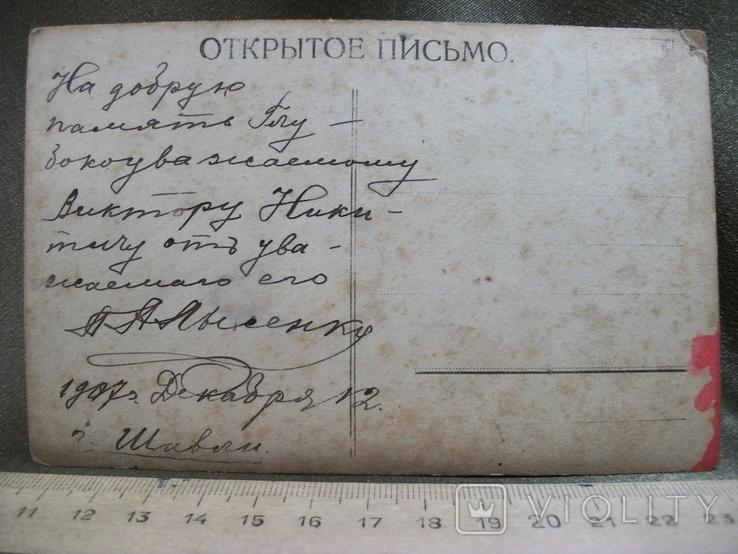 ОТКРЫТОЕ ПИСЬМО.
На добрую
память Глу-
бокоуважаемому
Виктору Ники-
тичу отъ ува-
жаемаго его
П А Лысенко
1907г Декабря 12.
г. Шавли.
11 12 13 14 15 16 17 18 19 20 21 22 23
VIOLITY